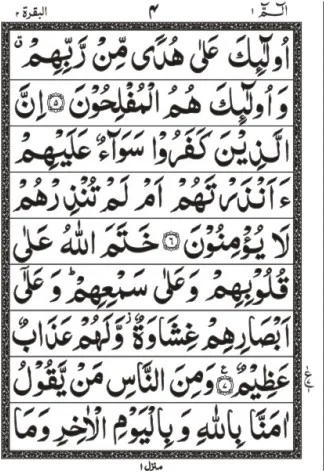 البقرة ٢ ٤ الٓمّٓ ١
اُولٰٓئِكَ عَلٰى هُدًى مِّنْ رَّبِّهِمْ ۗ
وَاُولٰٓئِكَ هُمُ الْمُفْلِحُوْنَ ۝٥ اِنَّ
الَّذِيْنَ كَفَرُوْا سَوَآءٌ عَلَيْهِمْ
ءَاَنْذَرْتَهُمْ اَمْ لَمْ تُنْذِرْهُمْ
لَا يُؤْمِنُوْنَ ۝٦ خَتَمَ اللّٰهُ عَلٰى
قُلُوْبِهِمْ وَعَلٰى سَمْعِهِمْ ؕ وَعَلٰٓى
اَبْصَارِهِمْ غِشَاوَةٌ ؗ وَّلَهُمْ عَذَابٌ
عَظِيْمٌ ۝٧ ع وَمِنَ النَّاسِ مَنْ يَّقُوْلُ
اٰمَنَّا بِاللّٰهِ وَبِالْيَوْمِ الْاٰخِرِ وَمَا
منزل ١